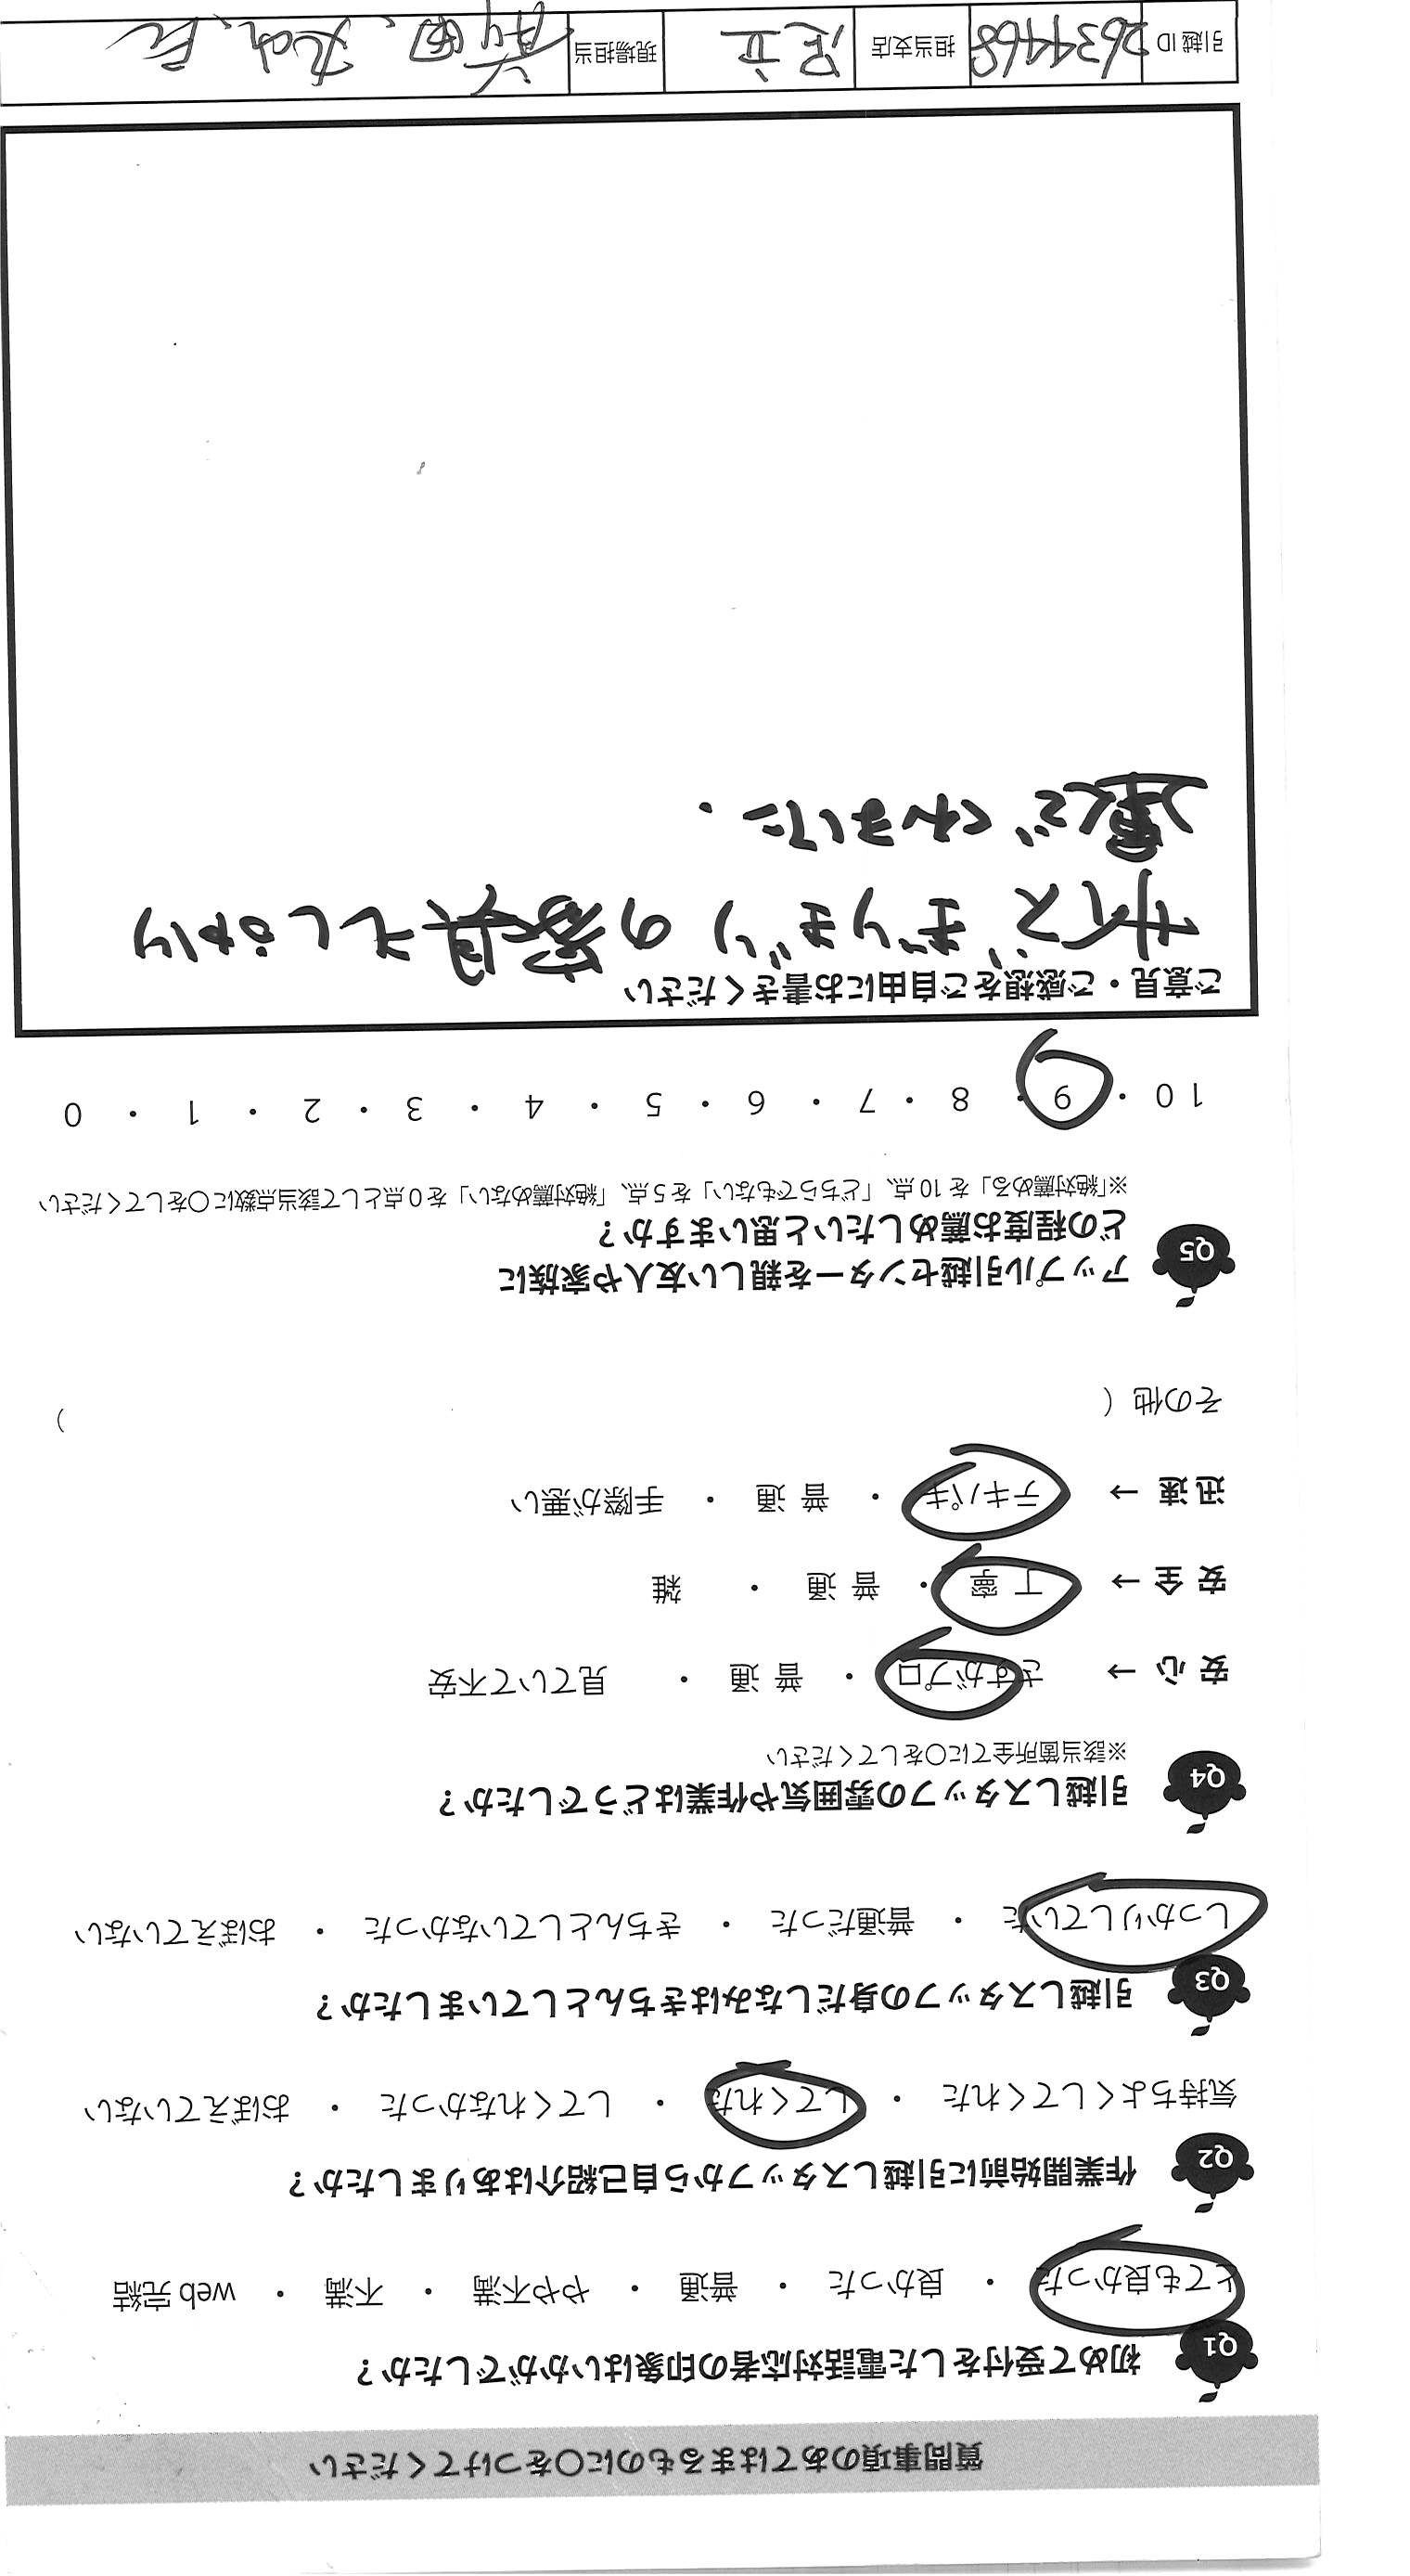 質問事項のあてはまるものに〇をつけてください
Q1 初めて受付をした電話対応者の印象はいかがでしたか？
とても良かった ・ 良かった ・ 普通 ・ やや不満 ・ 不満 ・ web 完結
Q2 作業開始前に引越しスタッフから自己紹介はありましたか？
気持ちよくしてくれた ・ してくれた ・ してくれなかった ・ おぼえていない
Q3 引越しスタッフの身だしなみはきちんとしていましたか？
しっかりしていた ・ 普通だった ・ きちんとしていなかった ・ おぼえていない
Q4 引越しスタッフの雰囲気や作業はどうでしたか？
※該当箇所全てに〇をしてください
安 心 → さすがプロ ・ 普 通 ・ 見ていて不安
安 全 → 丁 寧 ・ 普 通 ・ 雑
迅 速 → テキパキ ・ 普 通 ・ 手際が悪い
その他（ ）
Q5 アップル引越センターを親しい友人や家族に
どの程度お薦めしたいと思いますか？
※「絶対薦める」を 10 点、「どちらでもない」を 5 点、「絶対薦めない」を 0 点として該当点数に〇をしてください
10 ・ 9 ・ 8 ・ 7 ・ 6 ・ 5 ・ 4 ・ 3 ・ 2 ・ 1 ・ 0
ご意見・ご感想をご自由にお書きください
サイズギリギリの家具もしっかり
運んでくれました．
引越 ID 2634468 担当支店 足立 現場担当 前田、